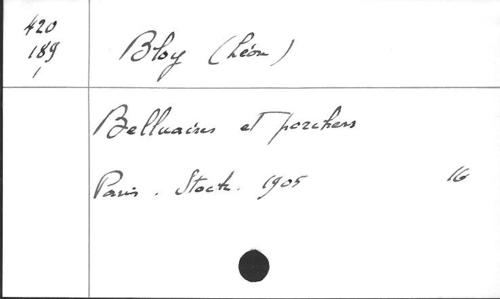 420
189
1
Bloy (Léon)
Belluaires et porchers
Paris. Stock. 1905 16